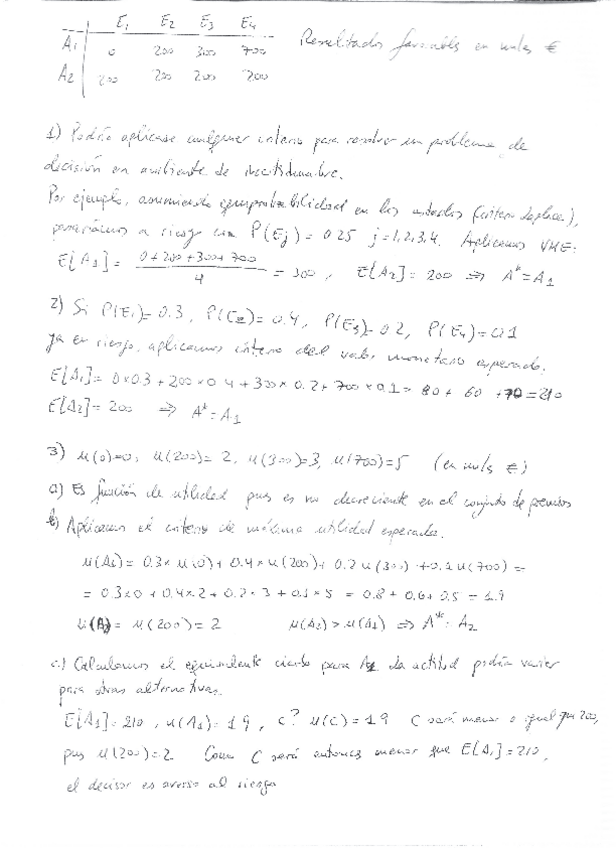 E1 E2 E3 E4
A1 0 200 300 700 Resultados favorables en miles €
A2 200 200 200 200
1) Podría aplicarse cualquier criterio para resolver un problema de
decisión en ambiente de incertidumbre.
Por ejemplo, asumiendo equiprobabilidad en los estados (criterio Laplace),
pasaríamos a riesgo con P(Ej) = 0.25 j=1,2,3,4. Aplicamos VME:
E[A1] = (0+200+300+700)/4 = 300, E[A2] = 200 ⇒ A* = A1
2) Si P(E1)=0.3, P(E2)=0.4, P(E3)=0.2, P(E4)=0.1
ya en riesgo, aplicamos criterio del valor monetario esperado.
E[A1] = 0×0.3 + 200×0.4 + 300×0.2 + 700×0.1 = 80 + 60 + 70 = 210
E[A2] = 200 ⇒ A* = A1
3) u(0)=0, u(200)=2, u(300)=3, u(700)=5 (en miles €)
a) Es función de utilidad pues es no decreciente en el conjunto de premios
b) Aplicamos el criterio de máxima utilidad esperada.
u(A1) = 0.3×u(0) + 0.4×u(200) + 0.2u(300) + 0.1u(700) =
= 0.3×0 + 0.4×2 + 0.2×3 + 0.1×5 = 0.8 + 0.6 + 0.5 = 1.9
u(A2) = u(200) = 2 u(A2) > u(A1) ⇒ A* = A2
c) Calculamos el equivalente cierto para A1. La actitud podría variar
para otras alternativas.
E[A1] = 210, u(A1) = 1.9, C? u(C) = 1.9 C será menor o igual que 200,
pues u(200)=2 Como C será entonces menor que E[A1] = 210,
el decisor es averso al riesgo